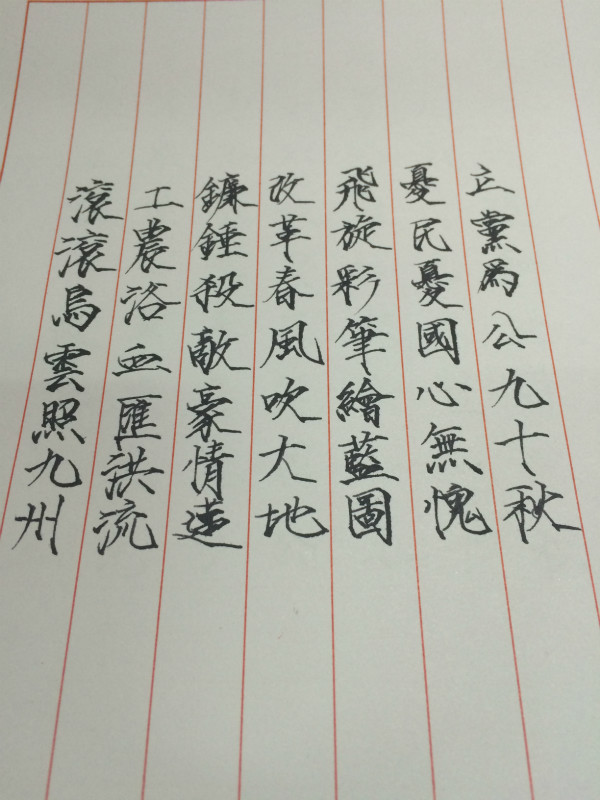 立黨爲公九十秋
憂民憂國心無愧
飛旋彩筆繪藍圖
改革春風吹大地
鐮錘殺敵豪情遠
工農浴血匯洪流
滾滾烏雲照九州